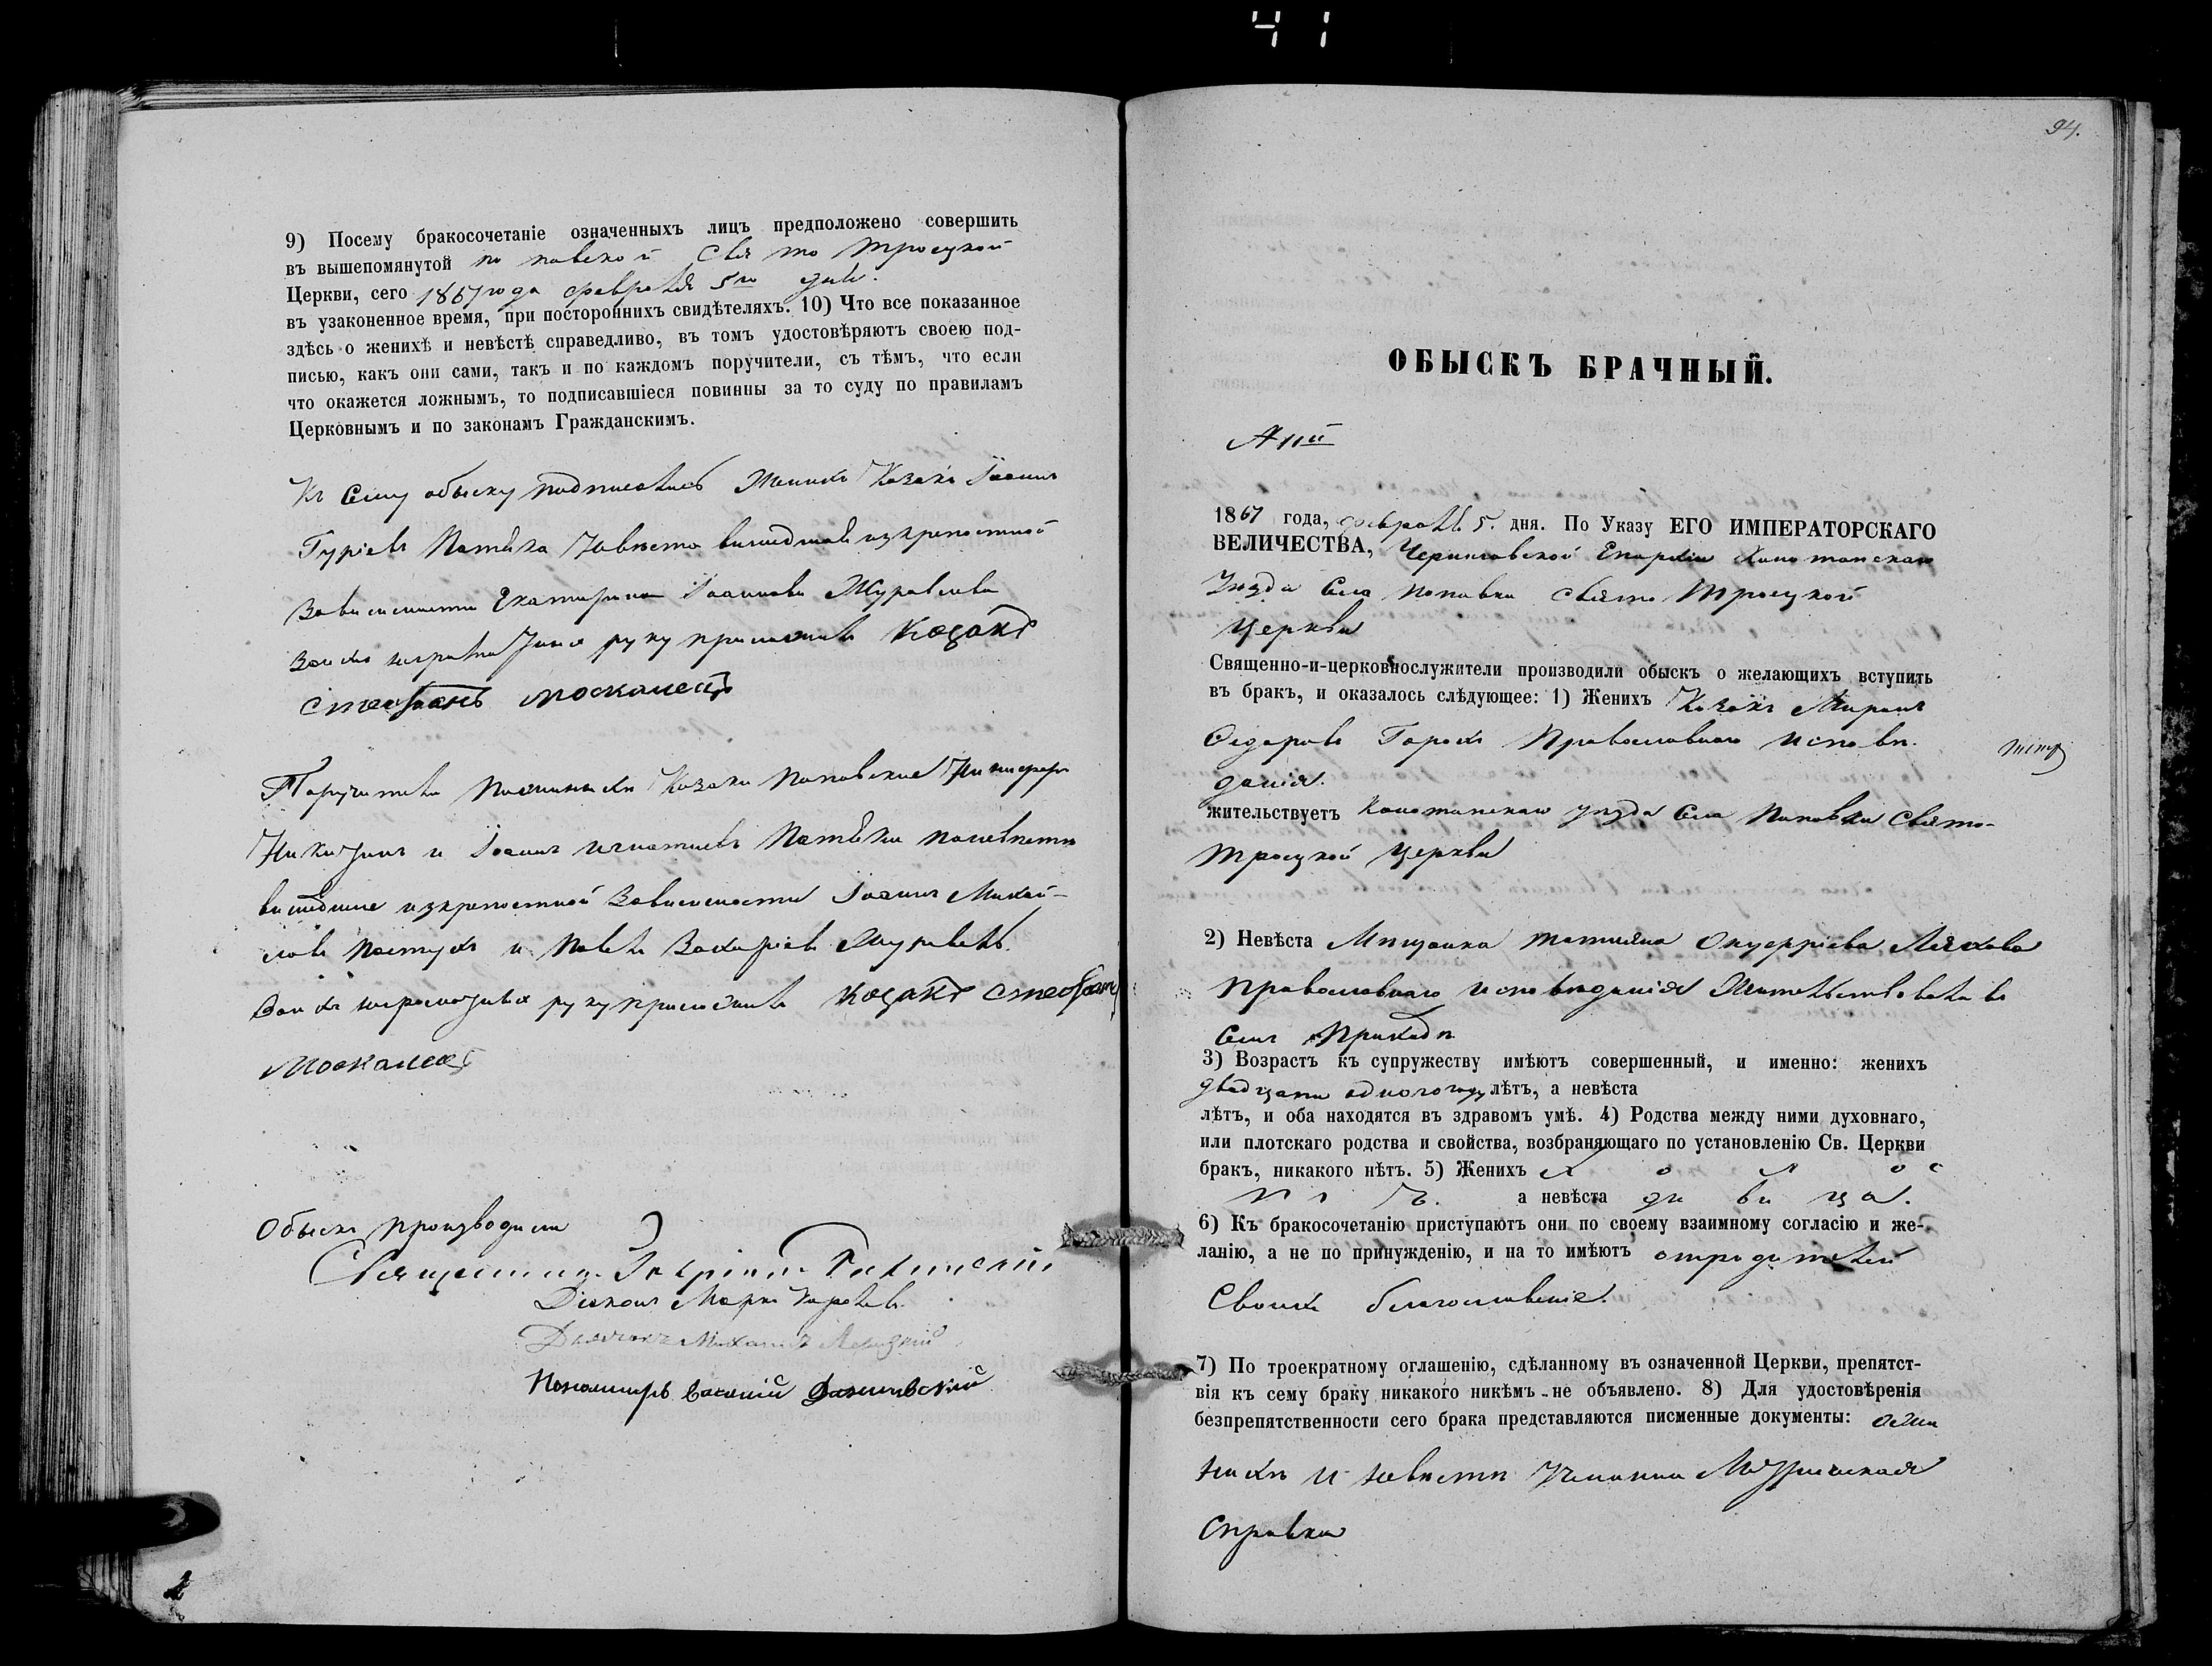 41
9) Посему бракосочетаніе означенныхъ лицъ предположено совершить
въ вышепомянутой поповской Свято Троецкой
Церкви, сего 1867 года февраля 5го дня.
въ узаконенное время, при постороннихъ свидѣтеляхъ. 10) Что все показанное
здѣсь о женихѣ и невѣстѣ справедливо, въ томъ удостовѣряютъ своею под-
писью, какъ они сами, такъ и по каждомъ поручители, съ тѣмъ, что если
что окажется ложнымъ, то подписавшіеся повинны за то суду по правиламъ
Церковнымъ и по законамъ Гражданскимъ.
Къ сему обыску подписались Женихъ Козакъ Іоаннъ
Гуріевъ невѣста вишедшая изкрепостной
Зависимости Екатерина Іоаннова Журавлева
руку приложилъ Козакъ
Стефанъ Москалецъ
Поручители Козаки Поповские
и Іоаннъ Игнатіевъ по невѣсте
вишедшие изкрепостной Зависимости Іоаннъ Михай-
ловъ Пастухъ и Павелъ Захаріевъ Журавель.
руку приложилъ Козакъ Стефанъ
Москалецъ
Обыскъ производили
Священникъ
Діаконъ Марко
Дьячокъ Михаилъ
Пономарь Василій
94.
ОБЫСКЪ БРАЧНЫЙ.
№ 11й
1867 года, февраля 5. дня. По Указу ЕГО ИМПЕРАТОРСКАГО
ВЕЛИЧЕСТВА, Черниговской Епархіи Конотопскаго
Уезда Села Поповки Свято Троецкой
Церкви
Священно-и-церковнослужители производили обыскъ о желающихъ вступить
въ бракъ, и оказалось слѣдующее: 1) Женихъ Козакъ Миронъ
Федоровъ Горохъ Православнаго исповѣ-
данія.
жительствуетъ Конотопскаго уезда Села Поповки Свято-
Троецкой Церкви
2) Невѣста Мещанка Татіяна Онуфріева Ляхова
Православнаго исповѣданія Жительствовала въ
семъ Приходѣ
3) Возрастъ къ супружеству имѣютъ совершенный, и именно: женихъ
двадцати одного году лѣтъ, а невѣста
лѣтъ, и оба находятся въ здравомъ умѣ. 4) Родства между ними духовнаго,
или плотскаго родства и свойства, возбраняющаго по установленію Св. Церкви
бракъ, никакого нѣтъ. 5) Женихъ Холос
а невѣста дѣвица.
6) Къ бракосочетанію приступаютъ они по своему взаимному согласію и же-
ланію, а не по принужденію, и на то имѣютъ отродителей
Своихъ благословеніе.
7) По троекратному оглашенію, сдѣланному въ означенной Церкви, препятст-
вія къ сему браку никакого никѣмъ не объявлено. 8) Для удостовѣренія
безпрепятственности сего брака представляются писменные документы: оже-
нихѣ и невѣстѣ учинина Мѣтрическая
Справка